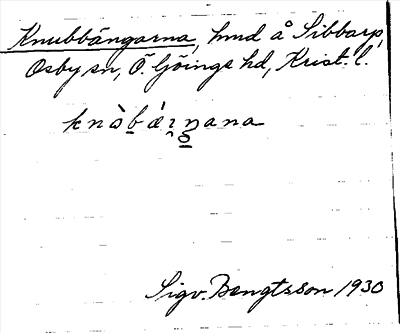 Knubbängarna, hmd å Sibbarp,
Osby sn, Ö. Göinge hd, Krist. l.
Sigv. Bengtsson 1930